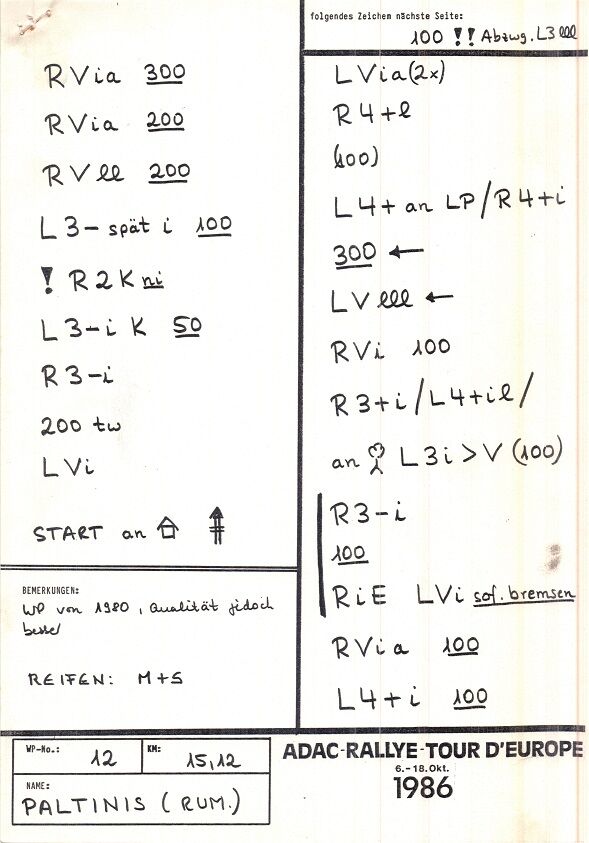 folgendes Zeichem nächste Seite:
100 !! Abzwg. L3 lll
RVia 300
RVia 200
RVll 200
L3- spät i 100
! R2K ni
L3-i K 50
R3-i
200 tw
LVi
START an
BEMERKUNGEN:
WP von 1980, Qualität jedoch
besser
REIFEN: M+S
LVia (2x)
R4+l
(100)
L4+ an LP/R4+i
300 ←
LV lll ←
RVi 100
R3+i/L4+il/
an L3i>V (100)
R3-i
100
RiE LVi sof. bremsen
RVia 100
L4+i 100
WP-No.: 12 KM: 15,12
NAME:
PALTINIS (RUM.)
ADAC-RALLYE-TOUR D'EUROPE
6.-18.Okt.
1986